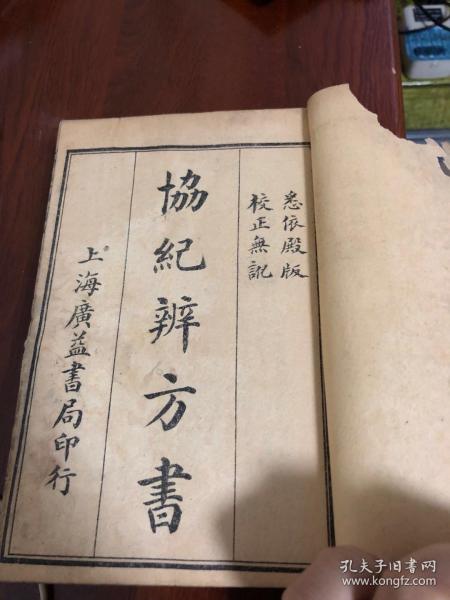 悉依殿版
校正無訛
協紀辨方書
上海廣益書局印行
孔夫子旧书网
www.kongfz.com